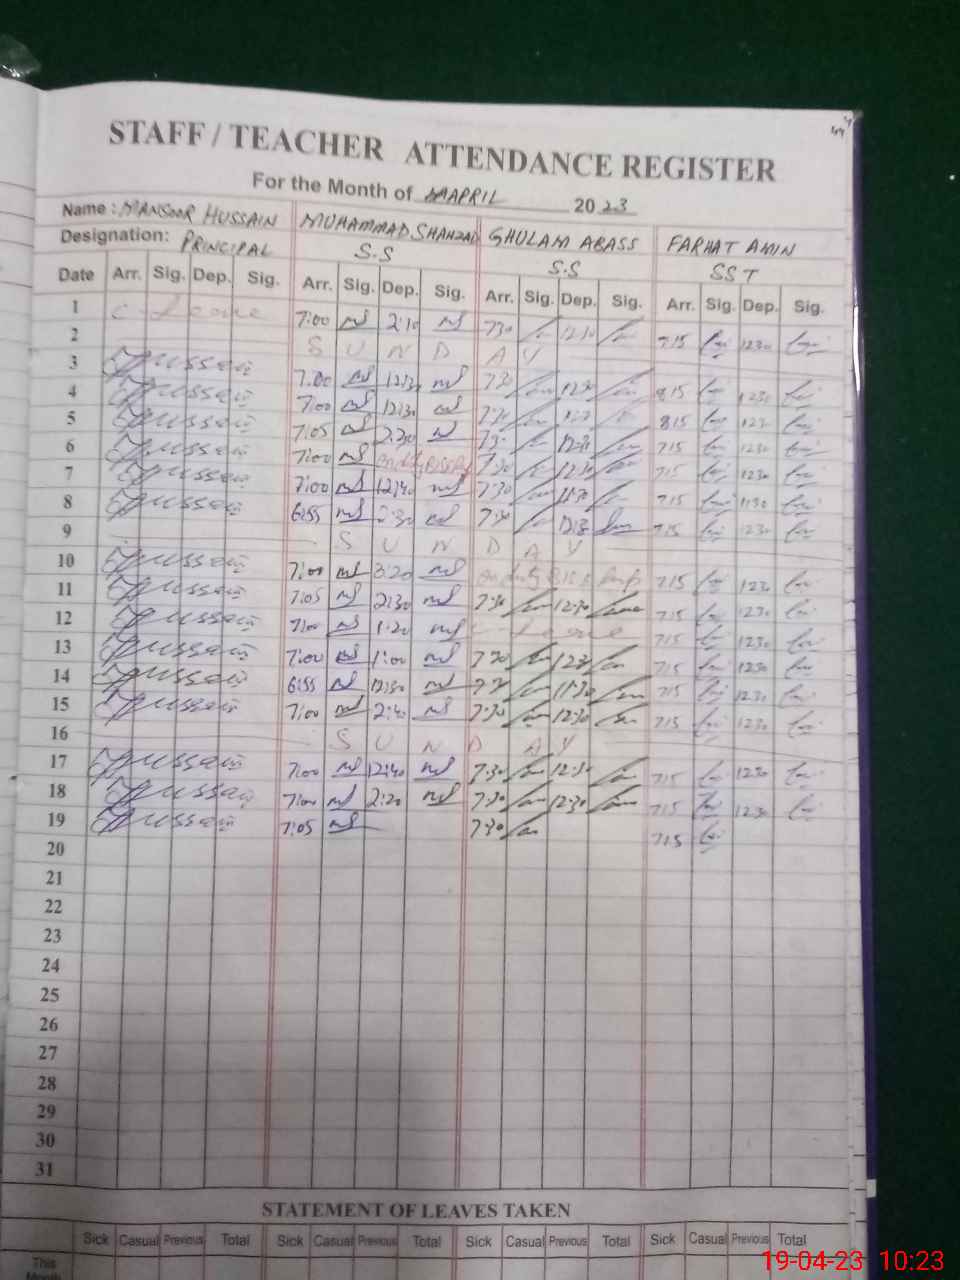 STAFF / TEACHER ATTENDANCE REGISTER
For the Month of APRIL 2023
Name : MANSOOR HUSSAIN MUHAMMAD SHAHZAD GHULAM ABASS FARHAT AMIN
Designation: PRINCIPAL S.S S.S SST
Date Arr. Sig. Dep. Sig. Arr. Sig. Dep. Sig. Arr. Sig. Dep. Sig. Arr. Sig. Dep. Sig.
1 C-Leave 7:00 2:10 7:30 12:30 715 1230
2 S U N D A Y
3 Hussain 7:00 12:30 7:30 12:30 815 1230
4 Hussain 7:00 12:30 7:30 815 1230
5 Hussain 7:05 2:30 7:30 12:30 715 1230
6 Hussain 7:00 on duty 7:30 12:30 715 1230
7 Hussain 7:00 12:40 7:30 11:30 715 1130
8 Hussain 6:55 2:30 7:30 12:30 715 1230
9 S U N D A Y
10 Hussain 7:00 3:20 on duty 715 1230
11 Hussain 7:05 2:30 7:30 12:30 715 1230
12 Hussain 7:00 1:20 C-Leave 715 1230
13 Hussain 7:00 1:00 7:30 12:30 715 1230
14 Hussain 6:55 12:30 7:30 11:30 715 1230
15 Hussain 7:00 2:40 7:30 12:30 715 1230
16 S U N D A Y
17 Hussain 7:00 12:40 7:30 12:30 715 1230
18 Hussain 7:00 2:20 7:30 12:30 715 1230
19 Hussain 7:05 7:30 715
20
21
22
23
24
25
26
27
28
29
30
31
STATEMENT OF LEAVES TAKEN
Sick Casual Previous Total Sick Casual Previous Total Sick Casual Previous Total Sick Casual Previous Total
This
Month
19-04-23 10:23